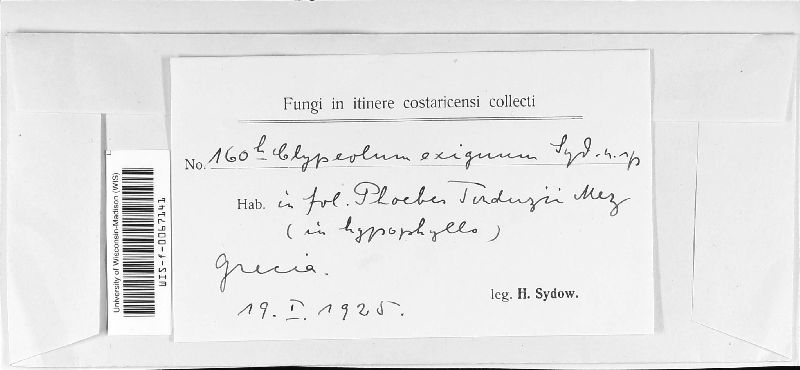 Fungi in itinere costaricensi collecti
No. 160h Clypeolum exiguum Syd. n. sp
Hab. in fol. Phoebes Tonduzii Mez
(in hypophyllo)
Grecia.
19. I. 1925.
leg. H. Sydow.
University of Wisconsin-Madison (WIS)
WIS-f-0067141